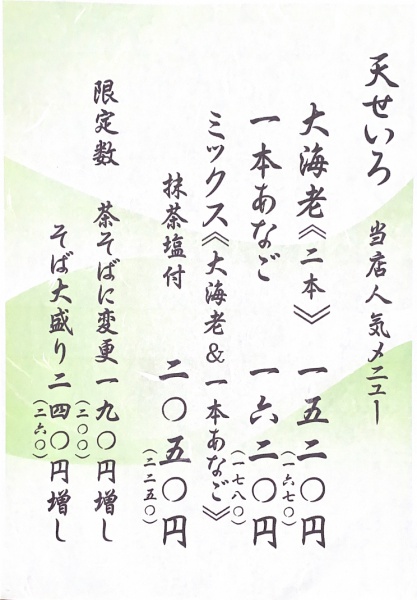 天せいろ 当店人気メニュー
大海老《二本》 一五二〇円
(一六七〇)
一本あなご 一六二〇円
(一七八〇)
ミックス《大海老&一本あなご》
抹茶塩付 二〇五〇円
(二二五〇)
限定数 茶そばに変更 一九〇円増し
(二〇〇)
そば大盛り 二四〇円増し
(二六〇)